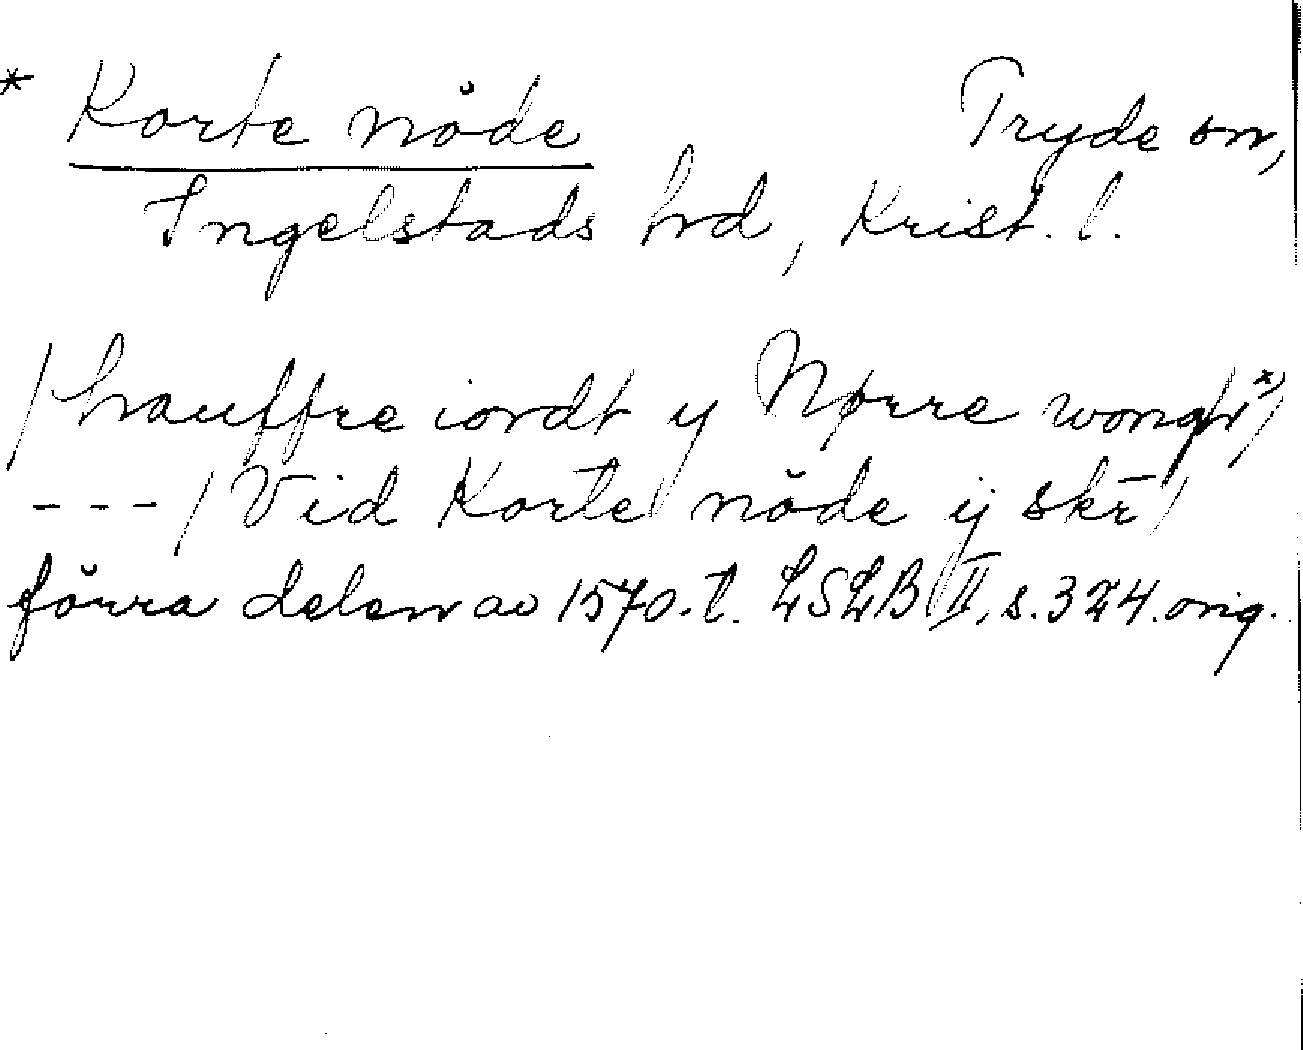 * Korte nöde Tryde sn,
Ingelstads hd, Krist. l.
/hauffre iordt y Nørre wongh*)/
---/Vid Korte nöde ij skr̄/
förra delen av 1570-t. LSLB II, s. 324. orig.